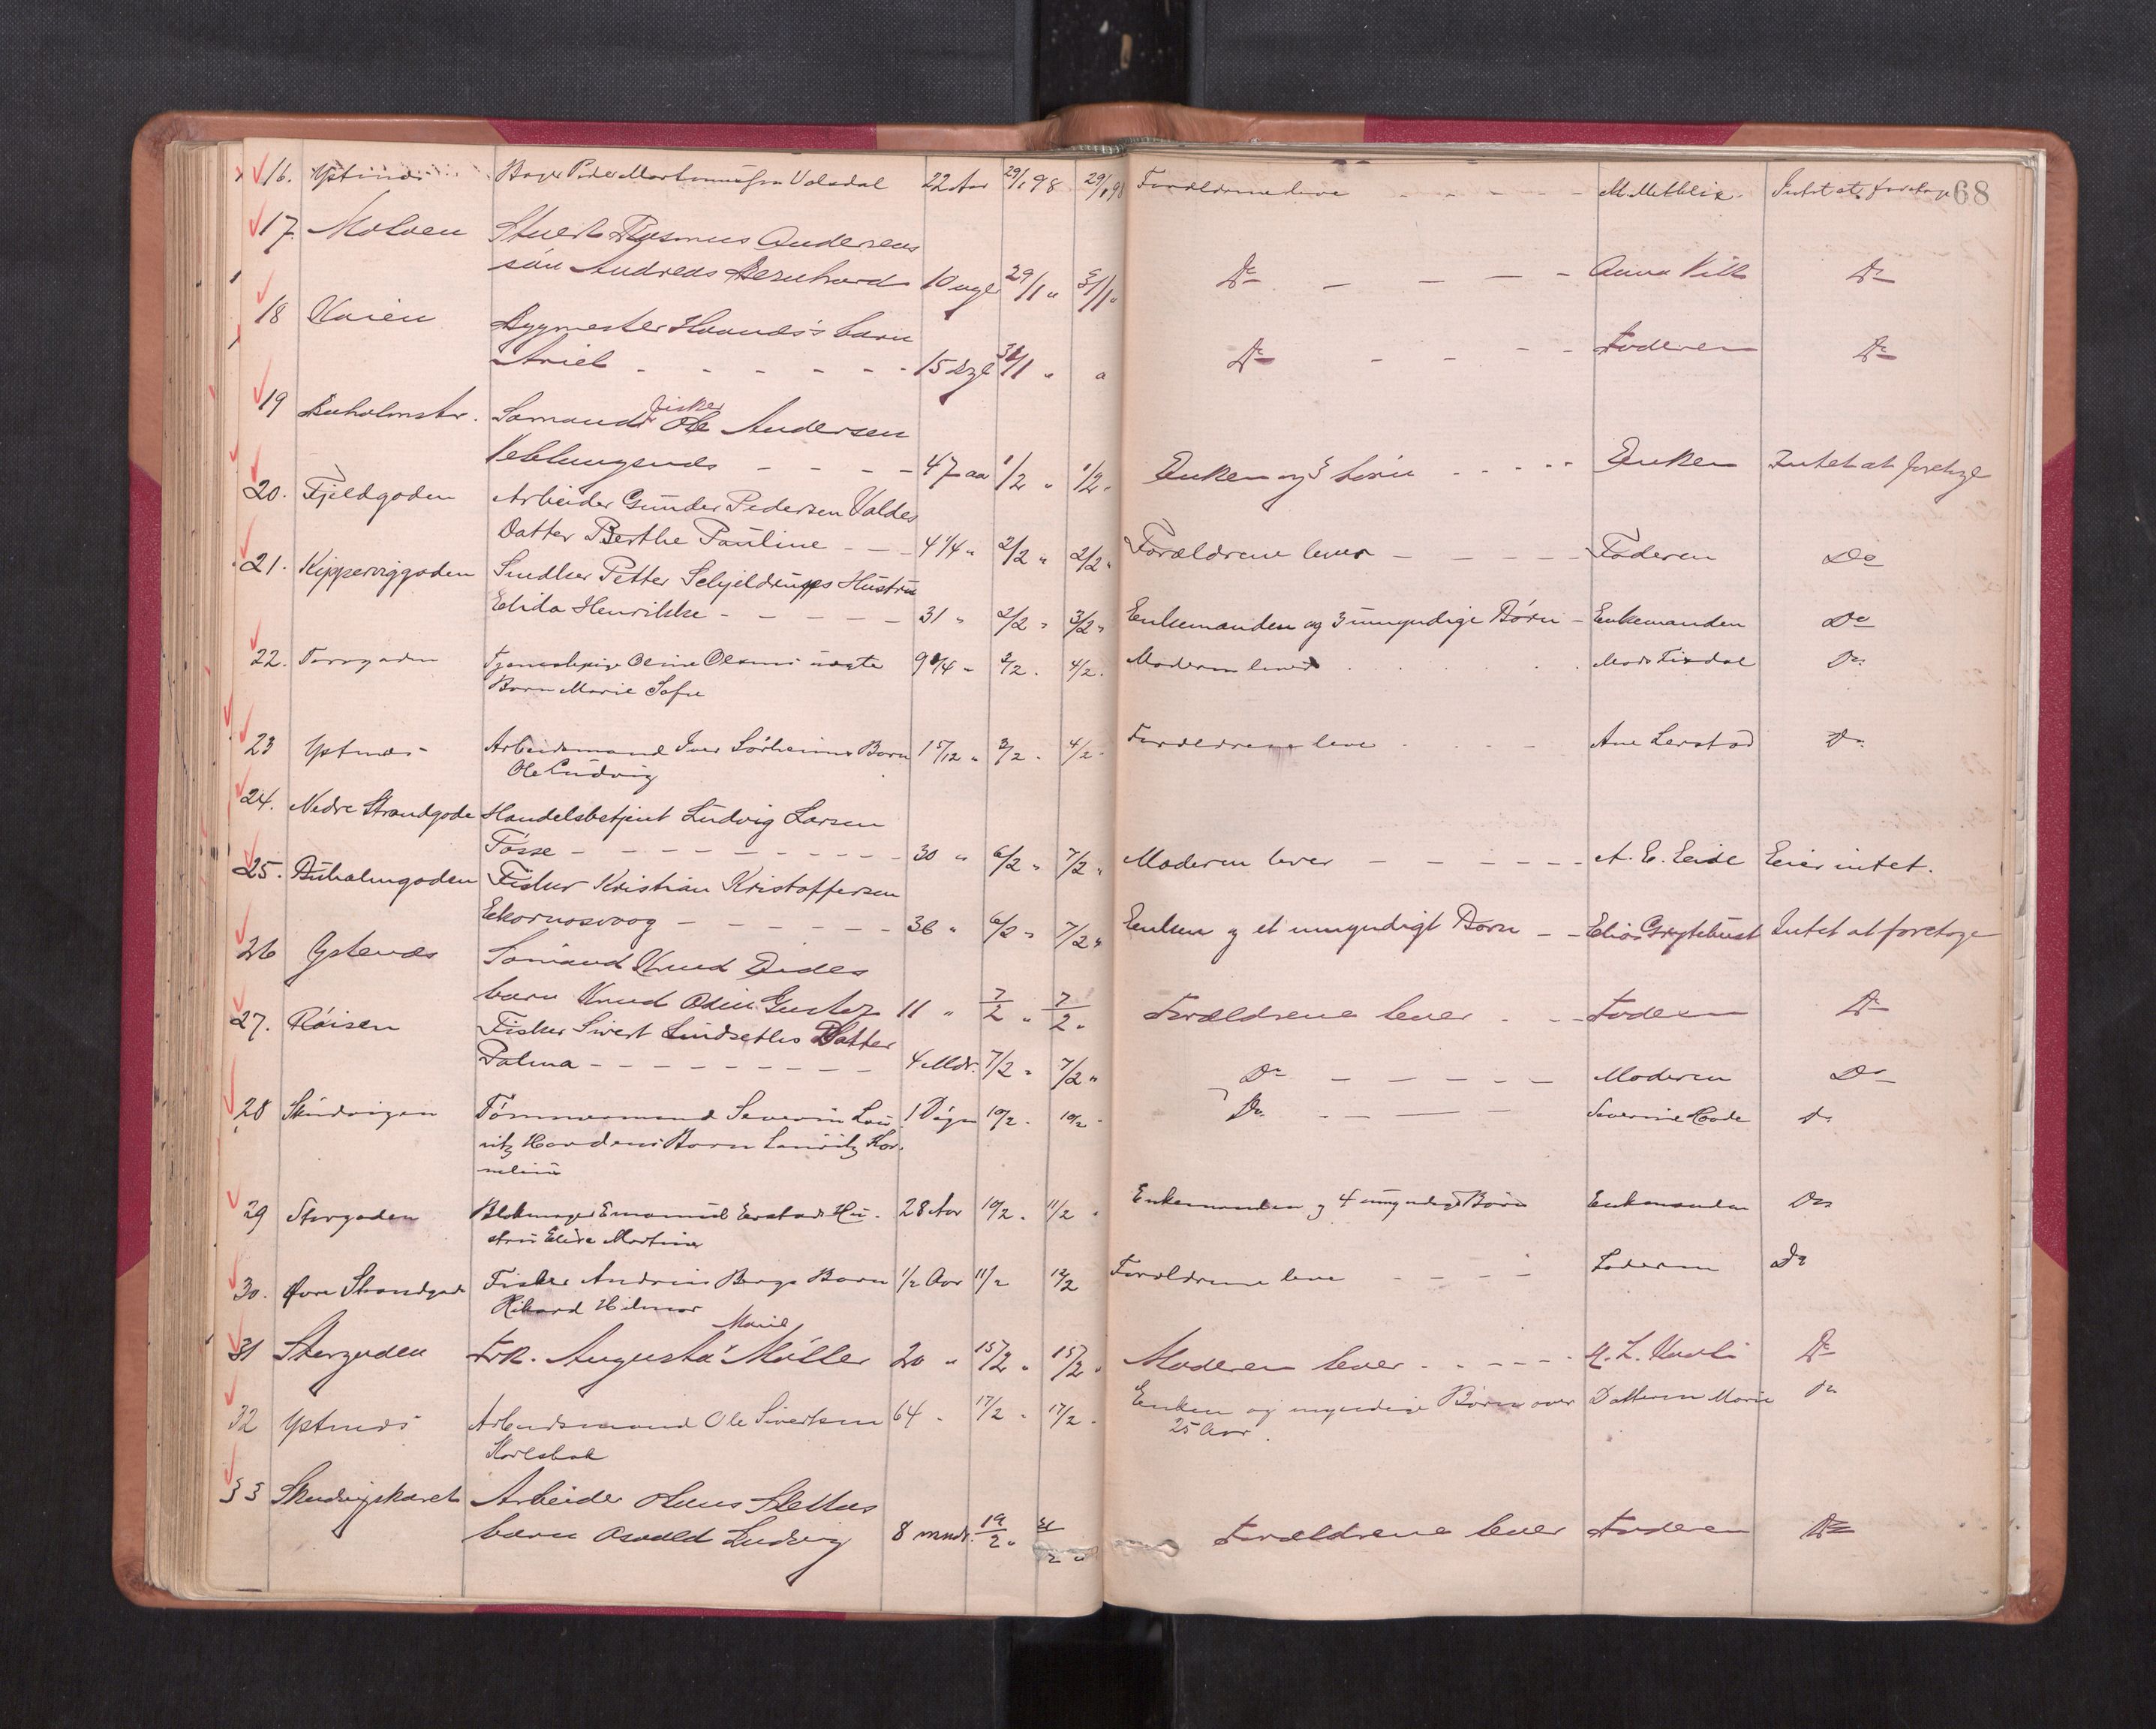 68
16. Ystenæs Bager Peder Martinussen Valsdal 22 Aar 29/1 98 29/1 98 Forældrene leve - - - - M. Metlie. Intet at foretage
17. Moloen Stuert Rasmus Andersens
søn Andreas Bernhard 10 ugl 29/1 " 31/1 " Do - - - - Anna Vik Do
18 Kaien Bygmester Haanæs's barn
Ariel - - - - - - 15 Dgl 31/1 " " Do - - - - Faderen Do
19 Buholmstr. Sømand Fisker Ole Andersen
Veblungsnæs - - - - 47 aar 1/2 " 1/2 " Enken og 3 børn - - - - - Enken Intet at foretage
20. Fjeldgaden Arbeider Gunder Pedersen Valdes
Datter Berthe Pauline - - - 4 1/4 " 2/2 " 2/2 " Forældrene lever - - - - - Faderen Do
21. Kipperviggaden Snedker Petter Schjeldrups Hustru
Elida Henrikke - - - - - 31 " 2/2 " 3/2 " Enkemanden og 3 umyndige Børn - Enkemanden Do
22. Torvgaden Tjenestepige Oline Olsens uægte 9 1/4 " 2/2 " 4/2 " Moderen lever . . . . . Mads Fixdal Do
Barn Marie Sofie
23 Ystenæs Arbeidsmand Iver Sørheims Barn 1 5/12 " 3/2 " 4/2 " Forældrene leve . - - - Ane Lerstad Do
Ole Ludvig
24. Nedre Strandgade Handelsbetjent Ludvig Larsen
Tøsse - - - - - - - - - 30 " 6/2 " 7/2 " Moderen lever - - - - - - A. E. Eide Eier intet.
25. Buholmgaden Fisker Kristian Kristoffersen
Ekornosvaag - - - - - - 36 " 6/2 " 7/2 " Enken og et umyndigt Barn - - Elias Grytebust Intet at foretage
26 Ystenæs Sømand Knud Eides
barn Knud Odin Gustav 11 " 7/2 " 7/2 " Forældrene lever - - - Faderen Do
27. Røisen Fisker Sivert Lindsethes Datter
Palma - - - - - - - - - 4 Mdr. 7/2 " 7/2 " Do - - - - - Moderen Do
28 Skudvigen Tømmermand Severin Lau- 1 Døgn 10/2 " 10/2 " Do - - - - Severine Hovde Do
ritz Hovdens Barn Lauritz Kor-
nelius
29 Storgaden Blikmager Emanuel Erstads Hu- 28 Aar 10/2 " 11/2 " Enkemanden og 4 umyndige Børn Enkemanden Do
stru Elida Martine
30. Øvre Strandgade Fisker Andreas Bergs Barn 1/2 Aar 11/2 12/2 Forældrene leve - - - - Faderen Do
Rikard Hilmar
31 Storgaden Frk. Augusta Marie Møller 20 " 15/2 " 15/2 " Moderen lever - - - - - M. L. Kavli Do
32 Ystenæs Arbeidsmand Ole Sivertsen 64 " 17/2 " 17/2 " Enken og myndige Børn over Datteren Marie Do
Karlsbak 25 Aar.
33 Skudvigskaret Arbeider Hans Slettas
barn Osvald Ludvig 8 mndr. 19/2 " 21/2 " Forældrene lever Faderen Do